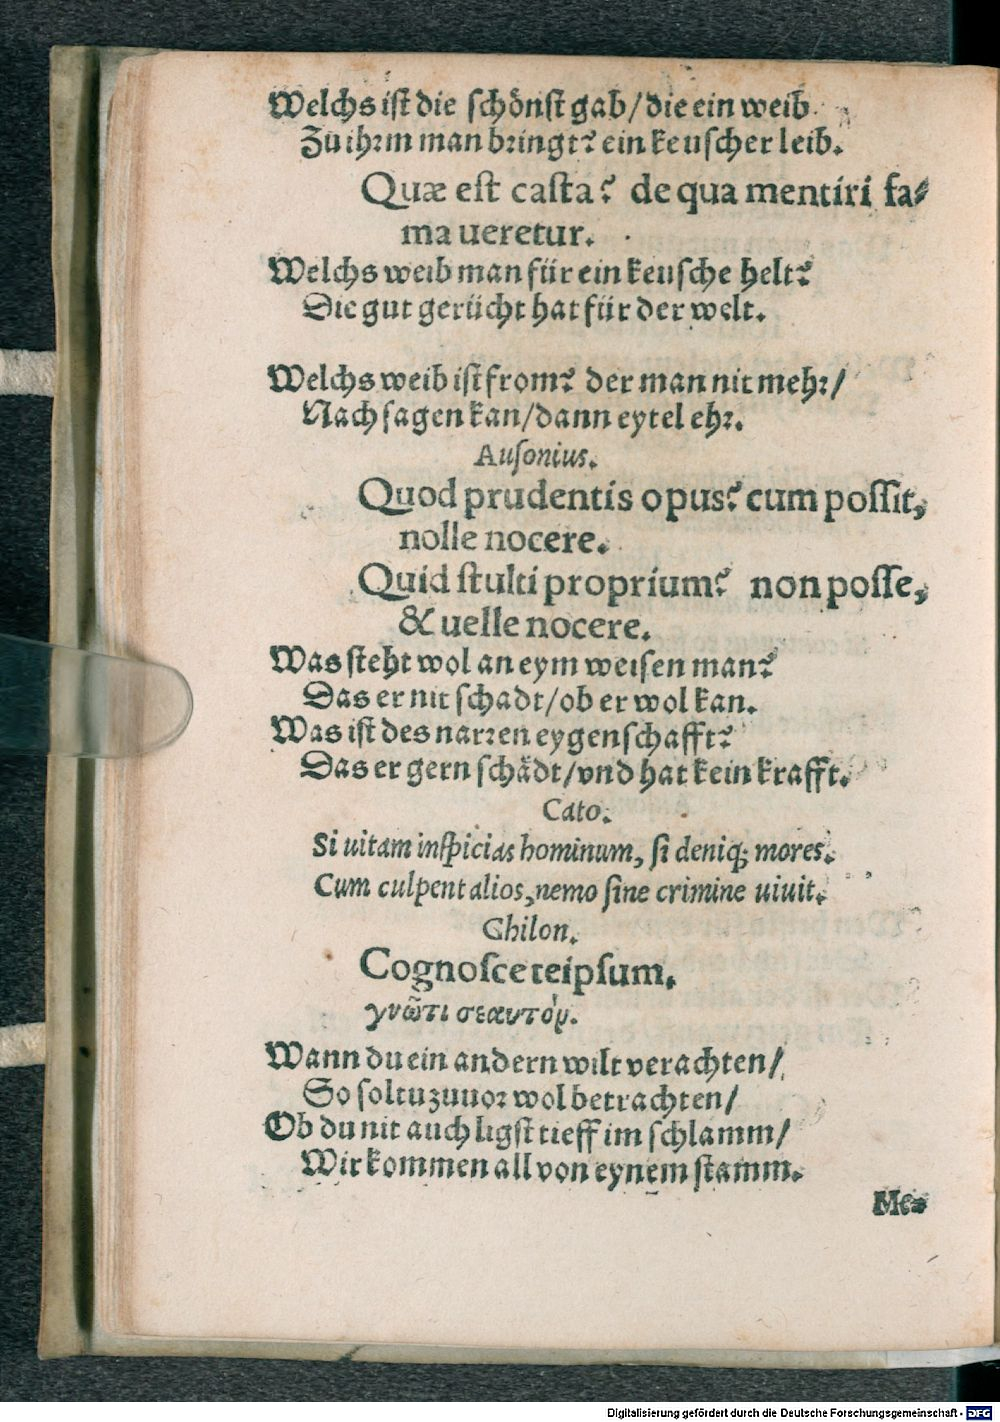 Welchs ist die schönst gab/die ein weib
Zu ihrm man bringt? ein keuscher leib.
Quæ est casta? de qua mentiri fa⸗
ma ueretur.
Welchs weib man für ein keusche helt?
Die gut gerücht hat für der welt.
Welchs weib ist from? der man nit mehr/
Nach sagen kan/dann eytel ehr.
Ausonius.
Quod prudentis opus? cum possit,
nolle nocere.
Quid stulti proprium? non posse,
& uelle nocere.
Was steht wol an eym weisen man?
Das er nit schadt/ob er wol kan.
Was ist des narren eygenschafft?
Das er gern schädt/vnd hat kein krafft.
Cato.
Si uitam inspicias hominum, si deniq; mores.
Cum culpent alios, nemo sine crimine uiuit.
Chilon.
Cognosce teipsum.
γνῶτι σεαυτόν.
Wann du ein andern wilt verachten/
So soltu zuuor wol betrachten/
Ob du nit auch ligst tieff im schlamm/
Wir kommen all von eynem stamm.
Me⸗
Digitalisierung gefördert durch die Deutsche Forschungsgemeinschaft - DFG